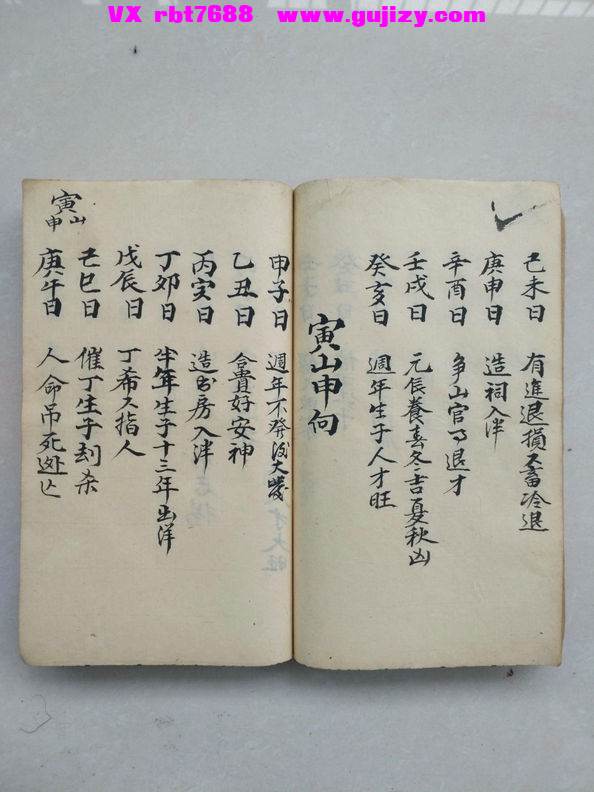 VX rbt7688 www.gujizy.com
己未日 有進退損六畜冷退
庚申日 造祠入泮
辛酉日 争山官司退才
壬戌日 元辰養春冬吉夏秋凶
癸亥日 週年生子人才旺
寅山申向
甲子日 週年不發後大發
乙丑日 合貴好安神
丙寅日 造書房入泮
丁卯日 半年生子十三年出洋
戊辰日 丁希六指人
己巳日 催丁生子刦杀
庚午日 人命吊死逃亡
寅山申